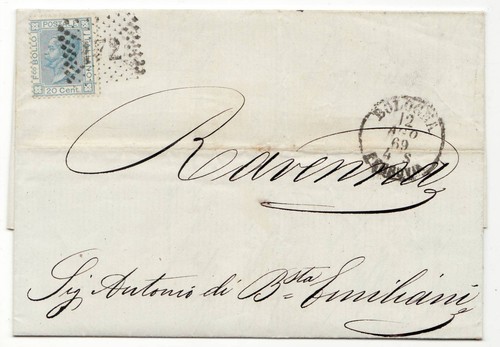 BOLLO POSTALE
20 Cent.
72
BOLOGNA
12
AGO
69
4 S
Ravenna
Sig Antonio di B.sta Emiliani